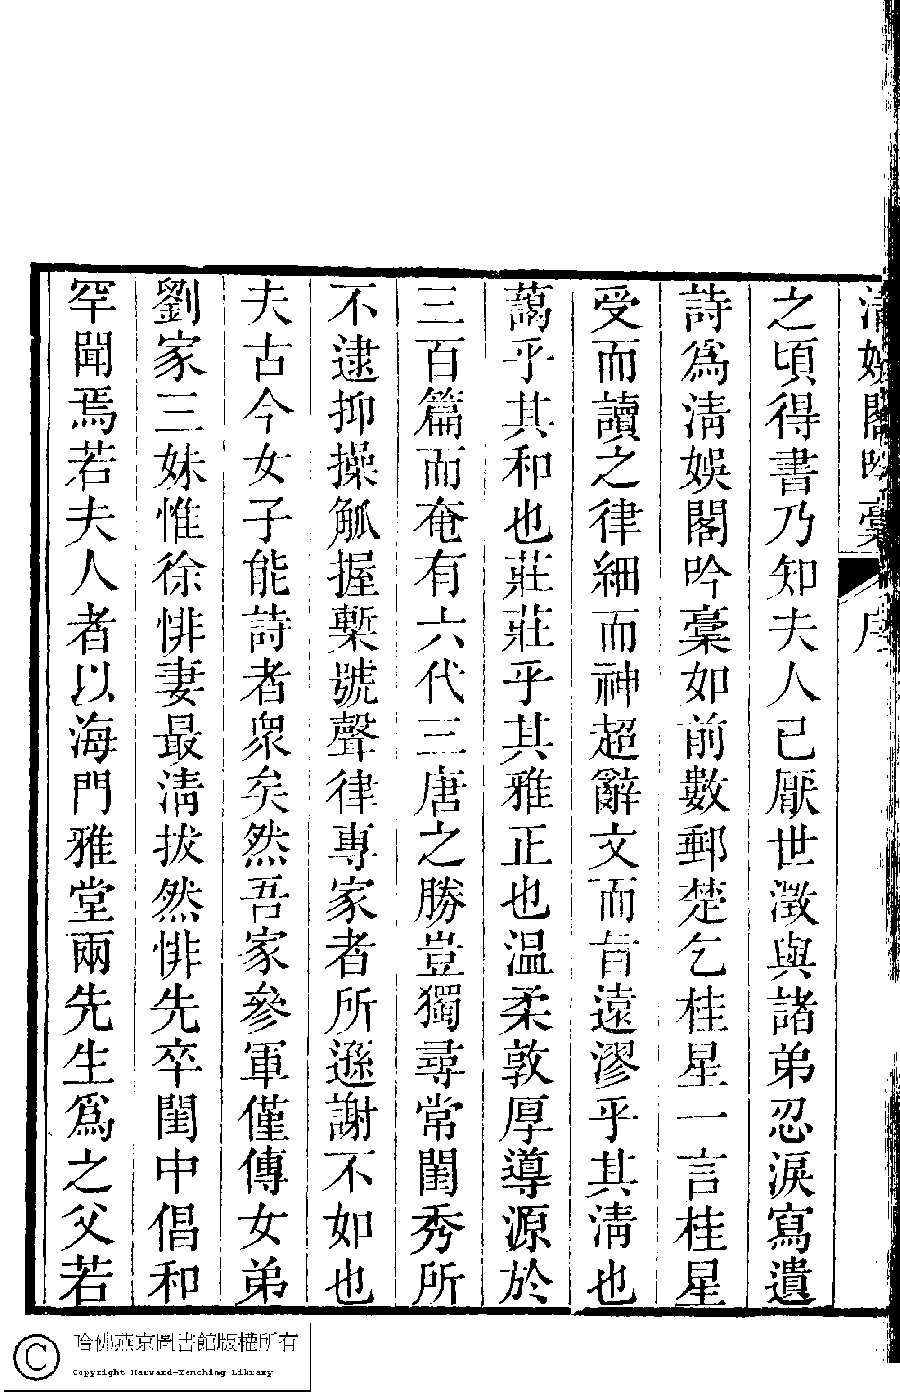 清娛閣吟稾 序
之頃得書乃知夫人已厭世澂與諸弟忍淚寫遺
詩爲清娛閣吟稾如前數郵楚乞桂星一言桂星
受而讀之律細而神超辭文而旨遠漻乎其清也
藹乎其和也莊莊乎其雅正也温柔敦厚導源於
三百篇而奄有六代三唐之勝豈獨尋常閨秀所
不逮抑操觚握槧號聲律專家者所遜謝不如也
夫古今女子能詩者衆矣然吾家參軍僅傳女弟
劉家三妹惟徐悱妻最清拔然悱先卒閨中倡和
罕聞焉若夫人者以海門雅堂兩先生爲之父若
哈佛燕京圖書館版權所有
Copyright Harvard-Yenching Library